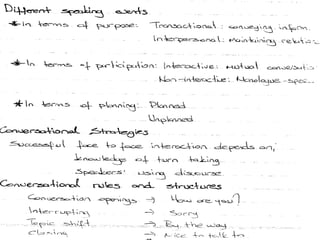 Different speaking events
*In terms of purpose: Transactional: conveying inform.
Interpersonal: maintaining relatio
*In terms of participation: Interactive: Mutual conversatio
Non-interactive: Monologue-spee
*In terms of planning: Planned
Unplanned
Conversational Strategies
Successful face to face interaction depends on;
knowledge of turn taking
Speakers' using discourse
Conversational rules and structures
Conversation openings → How are you?
Interrupting → Sorry
Topic shift → By the way
Closing → Nice to talk to